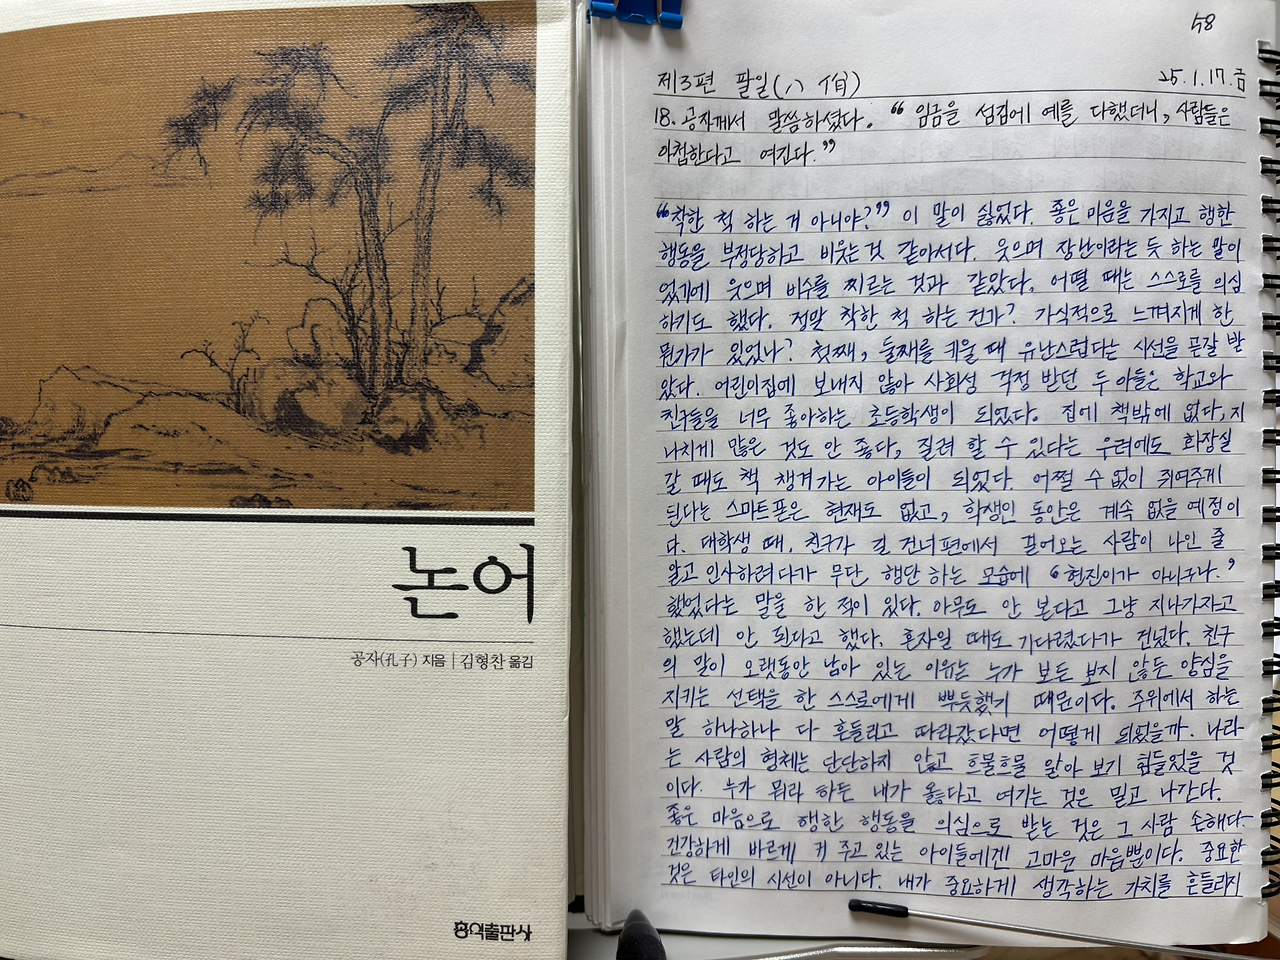 논어
공자(孔子) 지음 | 김형찬 옮김
홍익출판사
58
제3편 팔일(八佾) 25.1.17.금
18. 공자께서 말씀하셨다. “임금을 섬김에 예를 다했더니, 사람들은
아첨한다고 여긴다.”
“착한 척 하는 거 아니야?” 이 말이 싫었다. 좋은 마음을 가지고 행한
행동을 부정당하고 비웃는 것 같아서다. 웃으며 장난이라는 듯 하는 말이
었기에 웃으며 비수를 찌르는 것과 같았다. 어떨 때는 스스로를 의심
하기도 했다. 정말 착한 척 하는 건가? 가식적으로 느껴지게 한
뭔가가 있었나? 첫째, 둘째를 키울 때 유난스럽다는 시선을 곧잘 받
았다. 어린이집에 보내지 않아 사회성 걱정 받던 두 아들은 학교와
친구들을 너무 좋아하는 초등학생이 되었다. 집에 책밖에 없다, 지
나치게 많은 것도 안 좋다, 질려 할 수 있다는 우려에도 화장실
갈 때도 책 챙겨가는 아이들이 되었다. 어쩔 수 없이 쥐여주게
된다는 스마트폰은 현재도 없고, 학생인 동안은 계속 없을 예정이
다. 대학생 때, 친구가 길 건너편에서 걸어오는 사람이 나인 줄
알고 인사하려다가 무단 횡단 하는 모습에 ‘현진이가 아니구나.’
했었다는 말을 한 적이 있다. 아무도 안 본다고 그냥 지나가자고
했는데 안 된다고 했다. 혼자일 때도 기다렸다가 건넜다. 친구
의 말이 오랫동안 남아 있는 이유는 누가 보든 보지 않든 양심을
지키는 선택을 한 스스로에게 뿌듯했기 때문이다. 주위에서 하는
말 하나하나 다 흔들리고 따라갔다면 어떻게 되었을까. 나라
는 사람의 형체는 단단하지 않고 흐물흐물 알아 보기 힘들었을 것
이다. 누가 뭐라 하든 내가 옳다고 여기는 것은 밀고 나간다.
좋은 마음으로 행한 행동을 의심으로 받는 것은 그 사람 손해다.
건강하게 바르게 커 주고 있는 아이들에겐 고마운 마음뿐이다. 중요한
것은 타인의 시선이 아니다. 내가 중요하게 생각하는 가치를 흔들리지